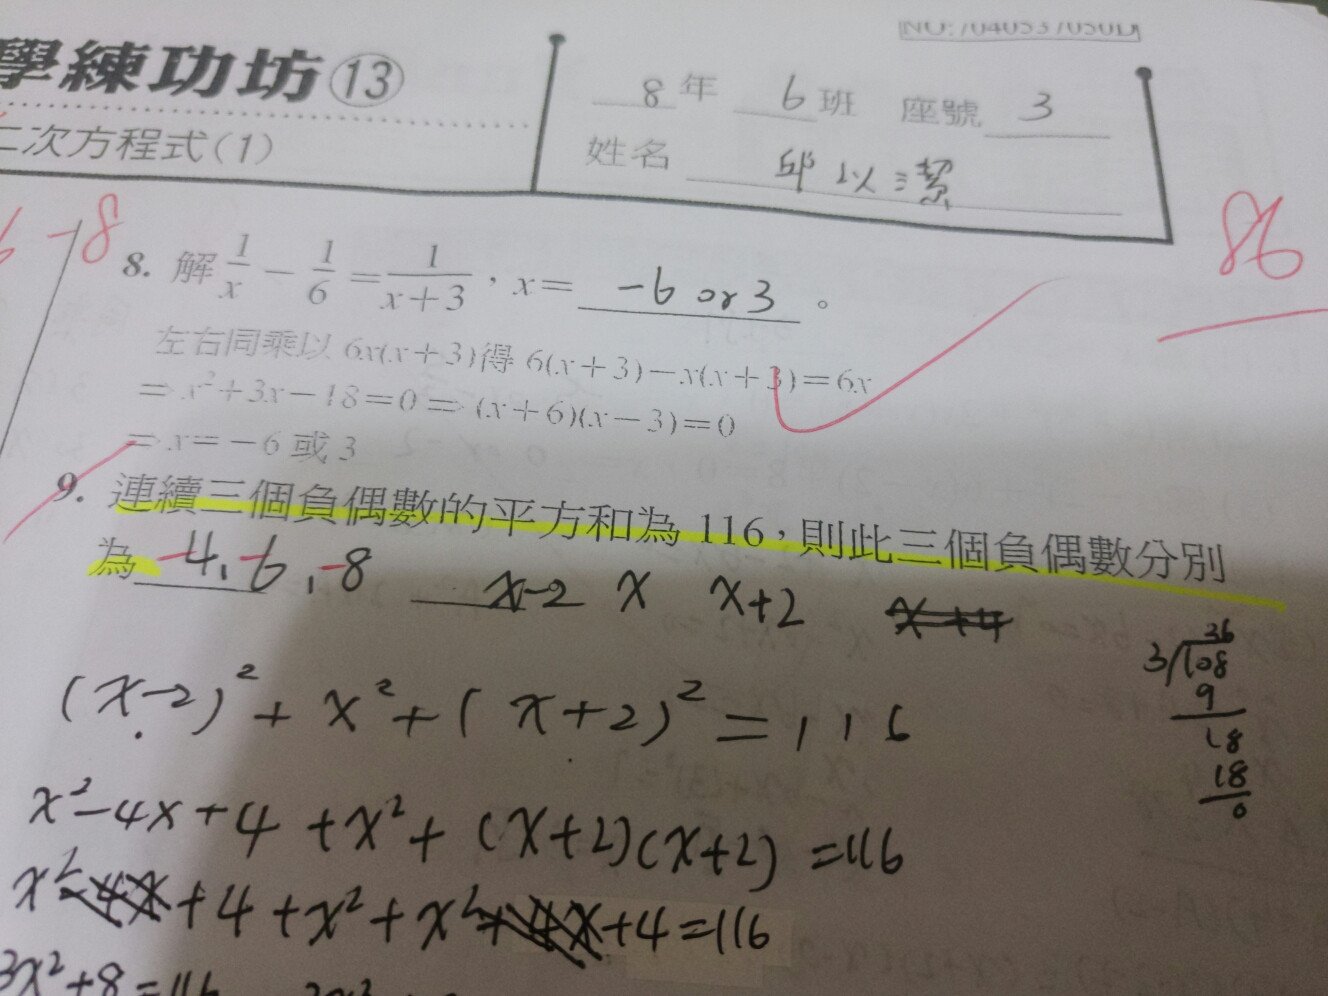 學練功坊⑬
二次方程式(1)
8年 6班 座號 3
姓名 邱以潔
86
-8
8. 解 1/x - 1/6 = 1/(x+3),x= -6 or 3 。
左右同乘以 6x(x+3)得 6(x+3)-x(x+3)=6x
⇒ x²+3x-18=0 ⇒ (x+6)(x-3)=0
⇒ x=-6 或 3
9. 連續三個負偶數的平方和為 116,則此三個負偶數分別
為 -4, -6, -8
x-2 x x+2 x+4
(x-2)²+x²+(x+2)²=116
x²-4x+4+x²+(x+2)(x+2)=116
x²-4x+4+x²+x²+4x+4=116
3x²+8=116
36
3)108
9
18
18
0